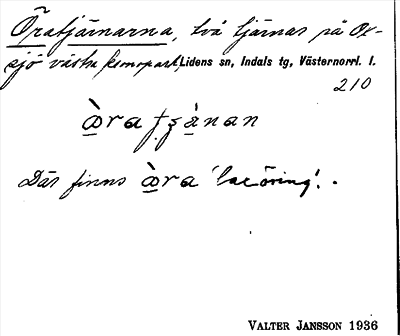 Öratjärnarna, två tjärnar på Ox-
sjö västra hemopark, Lidens sn, Indals tg, Västernorrl. l.
210
Där finns òra 'laxöring'. -
VALTER JANSSON 1936